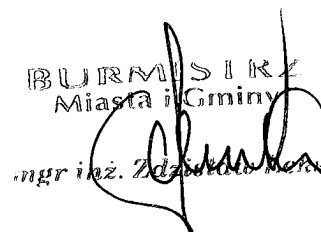 BURMISTRZ
Miasta i Gminy
mgr inż. Zdzisław